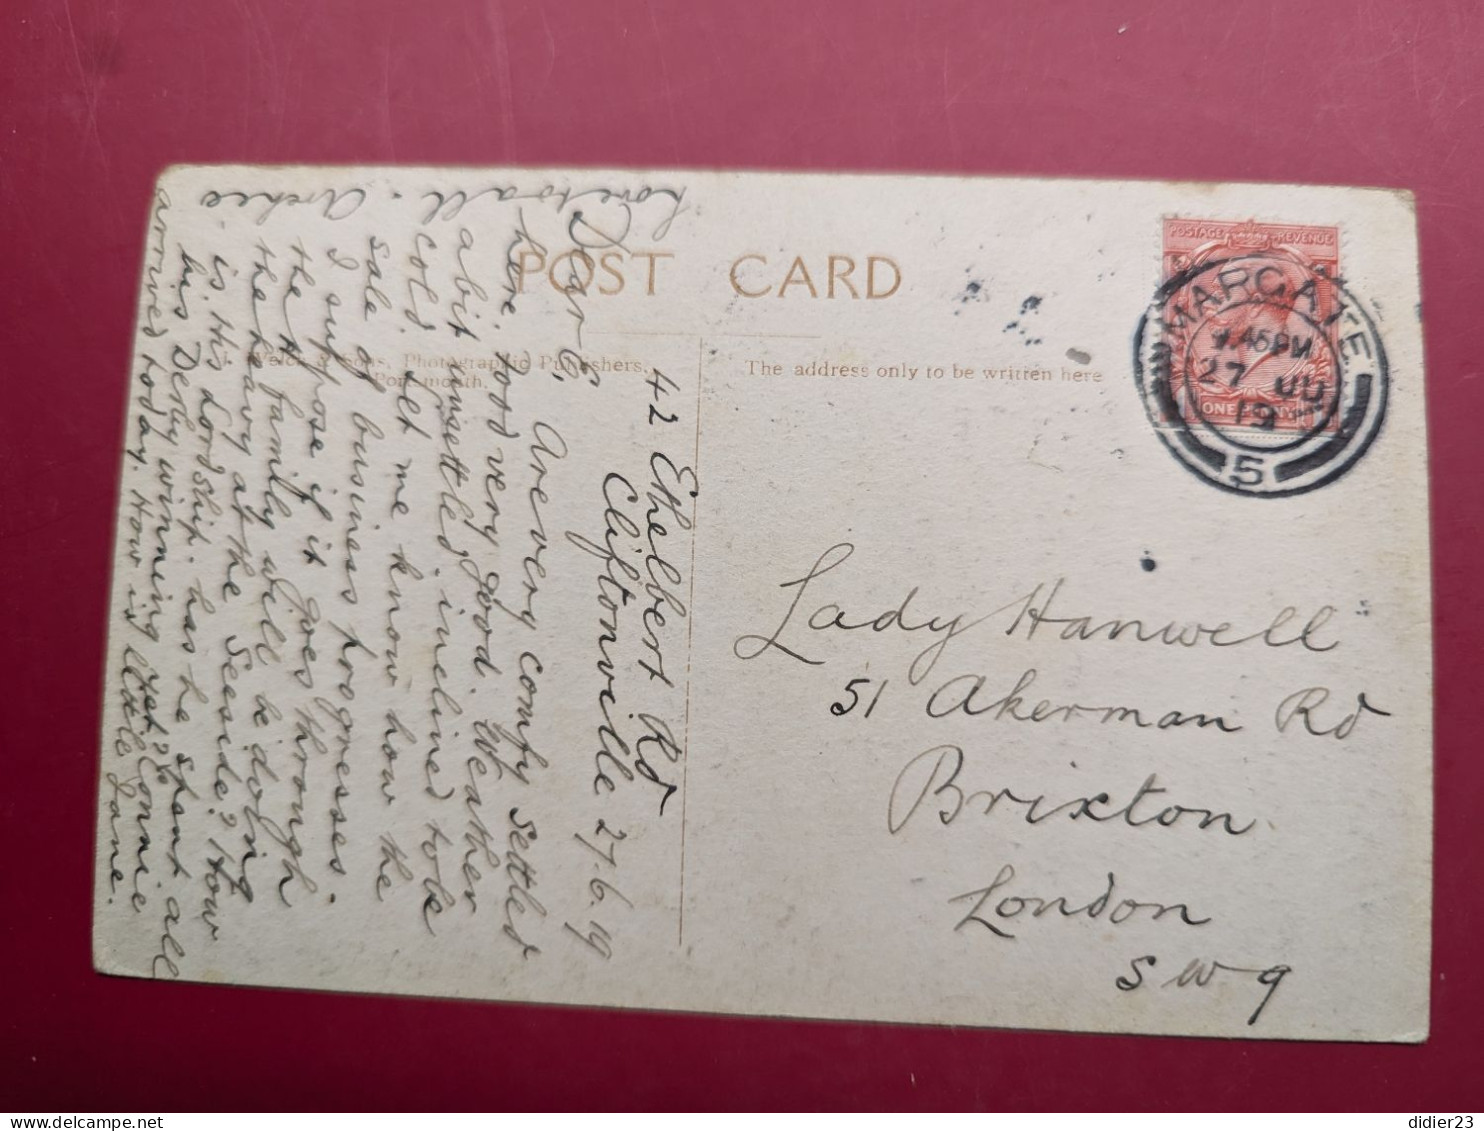 POST CARD
J. Welch & Sons, Photographic Publishers,
Portsmouth.
The address only to be written here
POSTAGE REVENUE
ONE PENNY
MARGATE
.45PM
27 JU
19
5
Lady Hanwell
51 Akerman Rd
Brixton
London
SW9
42 Ethelbert Rd
Cliftonville 27.6.19
Dear C,
Are very comfy settled
here. Food very good. Weather
abit unsettled. inclined to be
cold. Let me know how the
sale of business progresses.
I suppose if it goes through
the H family will be doing
the heavy at the Seeside? How
is His Lordship. has he spent all
his Derby winnings yet?? Connie
arrived today. How is little Jane.
Love to all. Archie
didier23